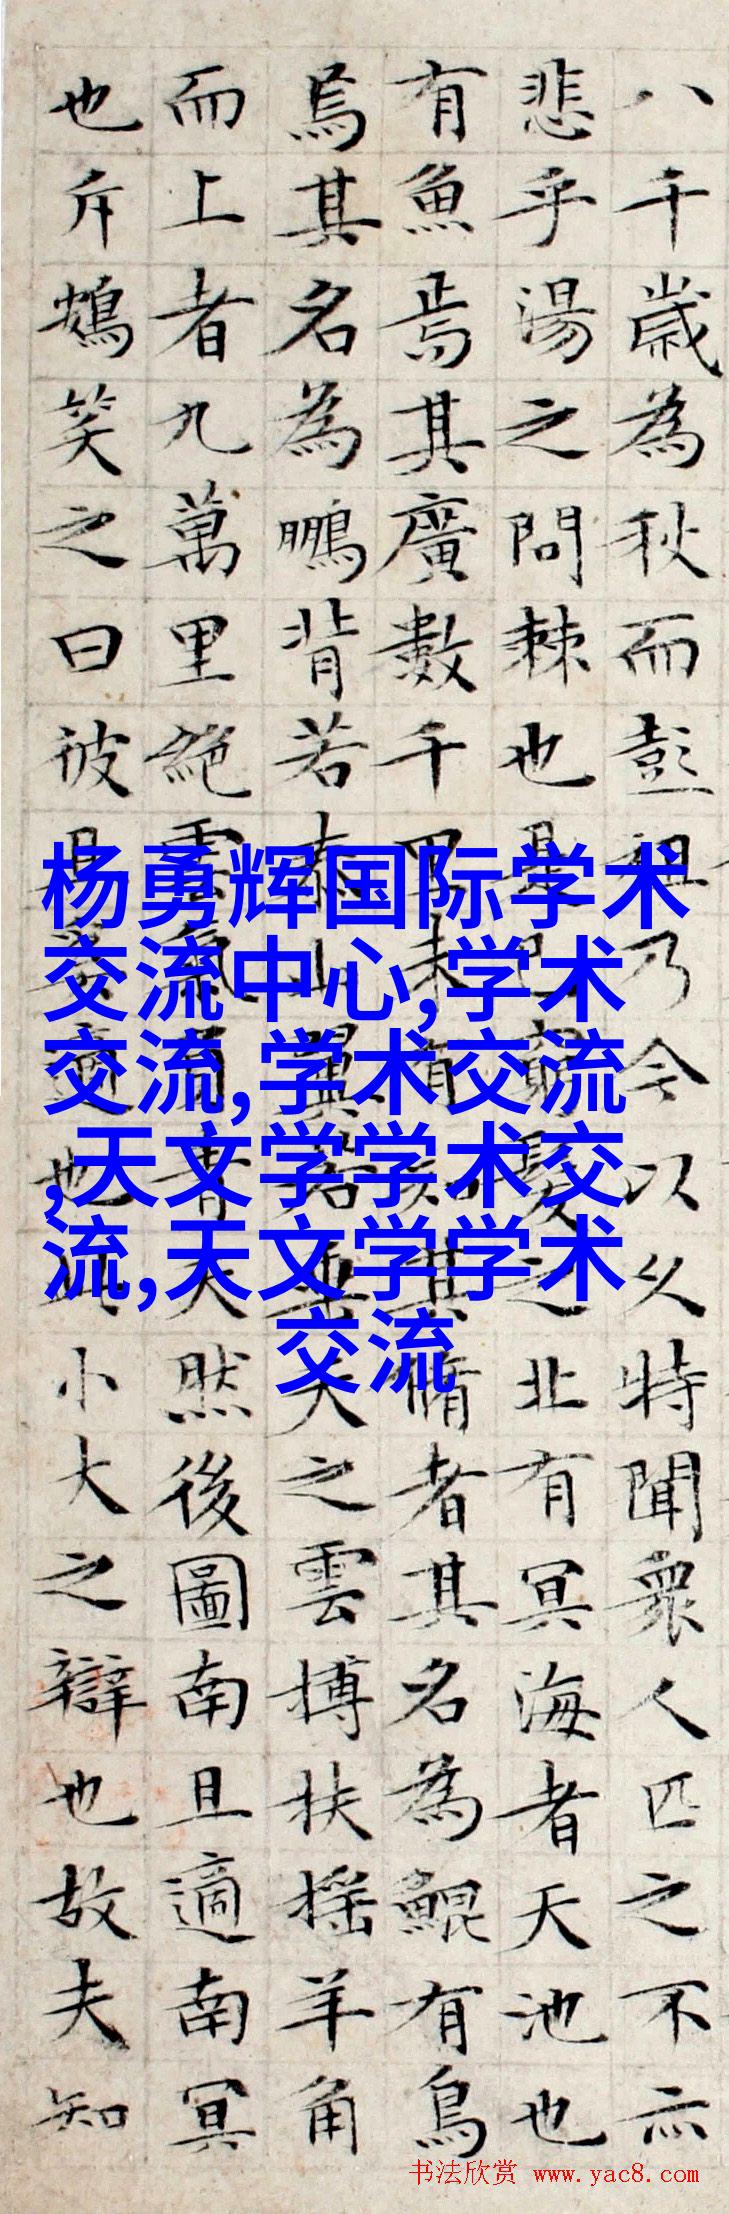 八千歲為秋而彭祖乃今以久特聞衆人匹之不亦
悲乎湯之問棘也是已窮髮之北有冥海者天池也
有魚焉其廣數千里未有知其脩者其名為鯤有鳥
焉其名為鵬背若泰山翼若垂天之雲搏扶搖羊角
而上者九萬里絕雲氣負青天然後圖南且適南冥
也斥鴳笑之曰彼且奚適也此小大之辯也故夫知
杨勇辉国际学术
交流中心,学术
交流,学术交流
,天文学学术交
流,天文学学术
交流
书法欣赏 www.yac8.com